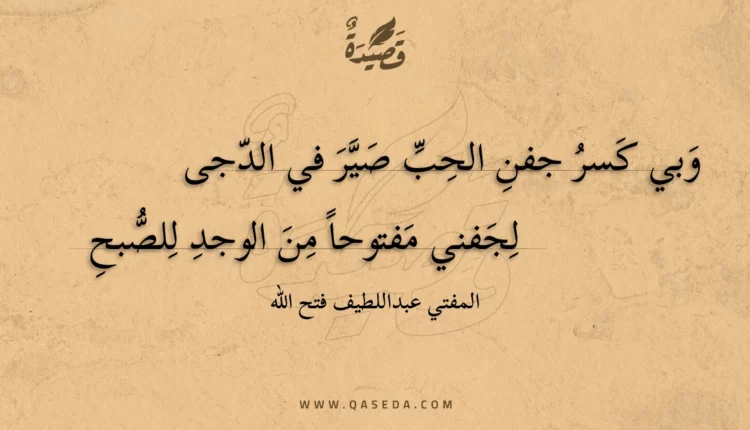 قَصِيْدَةٌ
وَبي كَسرُ جفنِ الحِبِّ صَيَّرَ في الدّجى
لِجَفني مَفتوحاً مِنَ الوجدِ لِلصُّبحِ
المفتي عبداللطيف فتح الله
WWW.QASEDA.COM